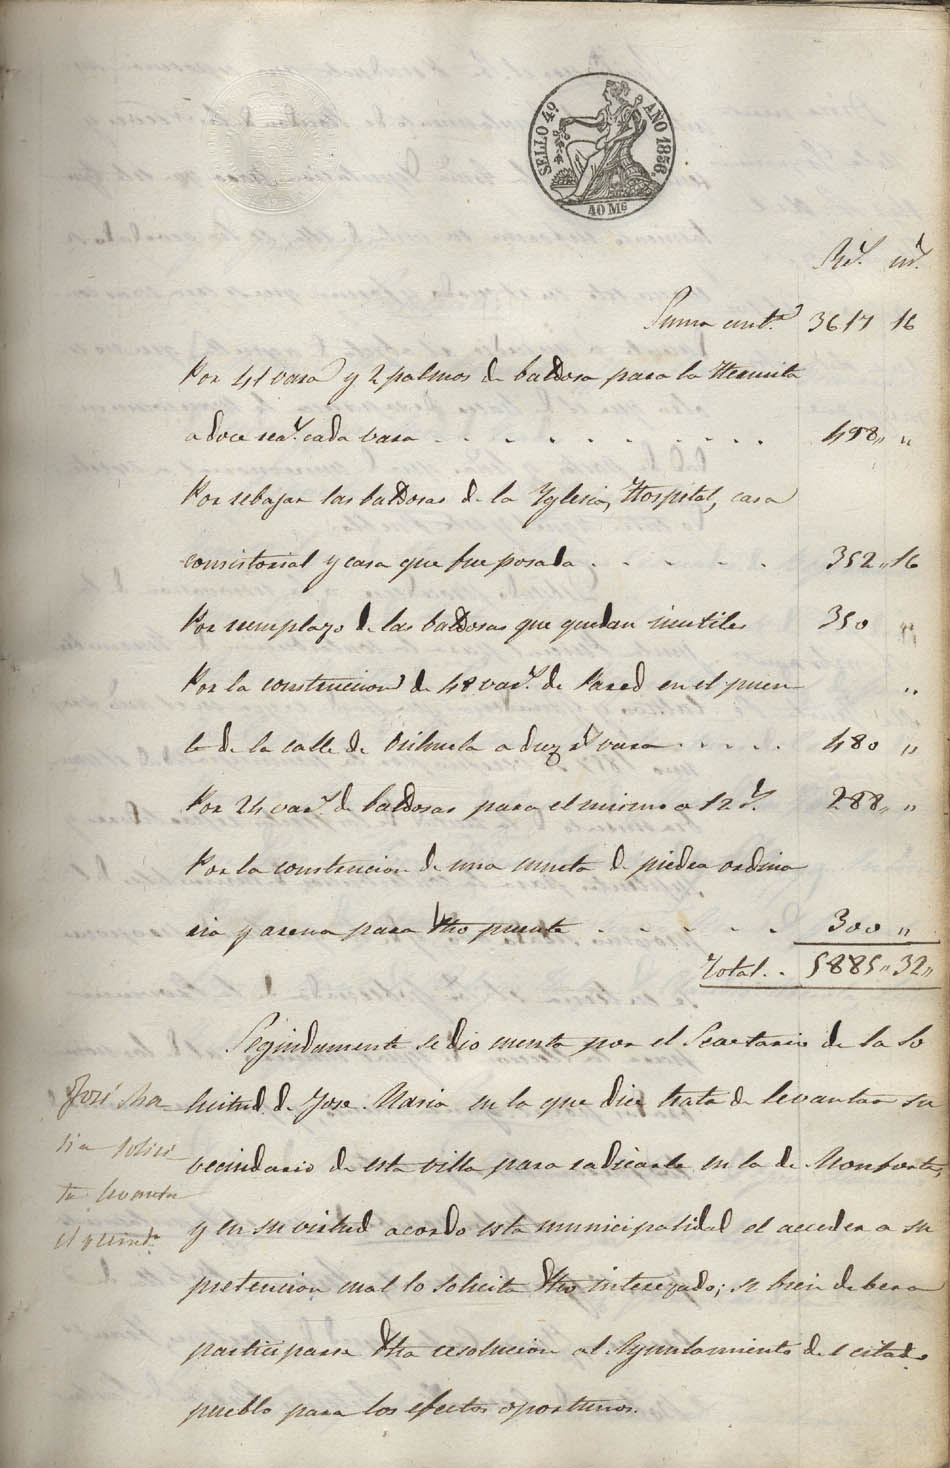 SELLO 4º. AÑO 1856.
40 Ms
Rs. ms.
Suma antr. 3617 16
Por 41 varas y 2 palmos de baldosa para la Hermita
a doce reas. cada vara . . . . . . . . . 498 „ „
Por rebajar las baldosas de la Yglesia, Hospital, casa
consistorial y casa que fue posada . . . . . 352 „ 16
Por remplazo de las baldosas que quedan inutiles 350 „
Por la construccion de 48 vars. de Pared en el puen „
te de la calle de Orihuela a diez rs. vara . . . . 480 „
Por 24 vars. de baldosas para el mismo a 12 rs. 288 „ „
Por la construcion de una cuneta de piedra ordina
ria y arena para dho puente . . . . . 300 „
Total . . 5885 „ 32 „
Seguidamente se dio cuenta por el Secretario de la So
licitud de Jose Maria en la que dice trata de levantar su
vecindario de esta villa, para radicarle en la de Monforte,
y en su virtud acordo esta municipalidad el acceder a su
pretencion cual lo solicita dho interezado; si bien debera
participarse dha resolucion al Ayuntamiento del citado
pueblo para los efectos oportunos.
José Ma-
ria solici
ta levantar
el vecindo.